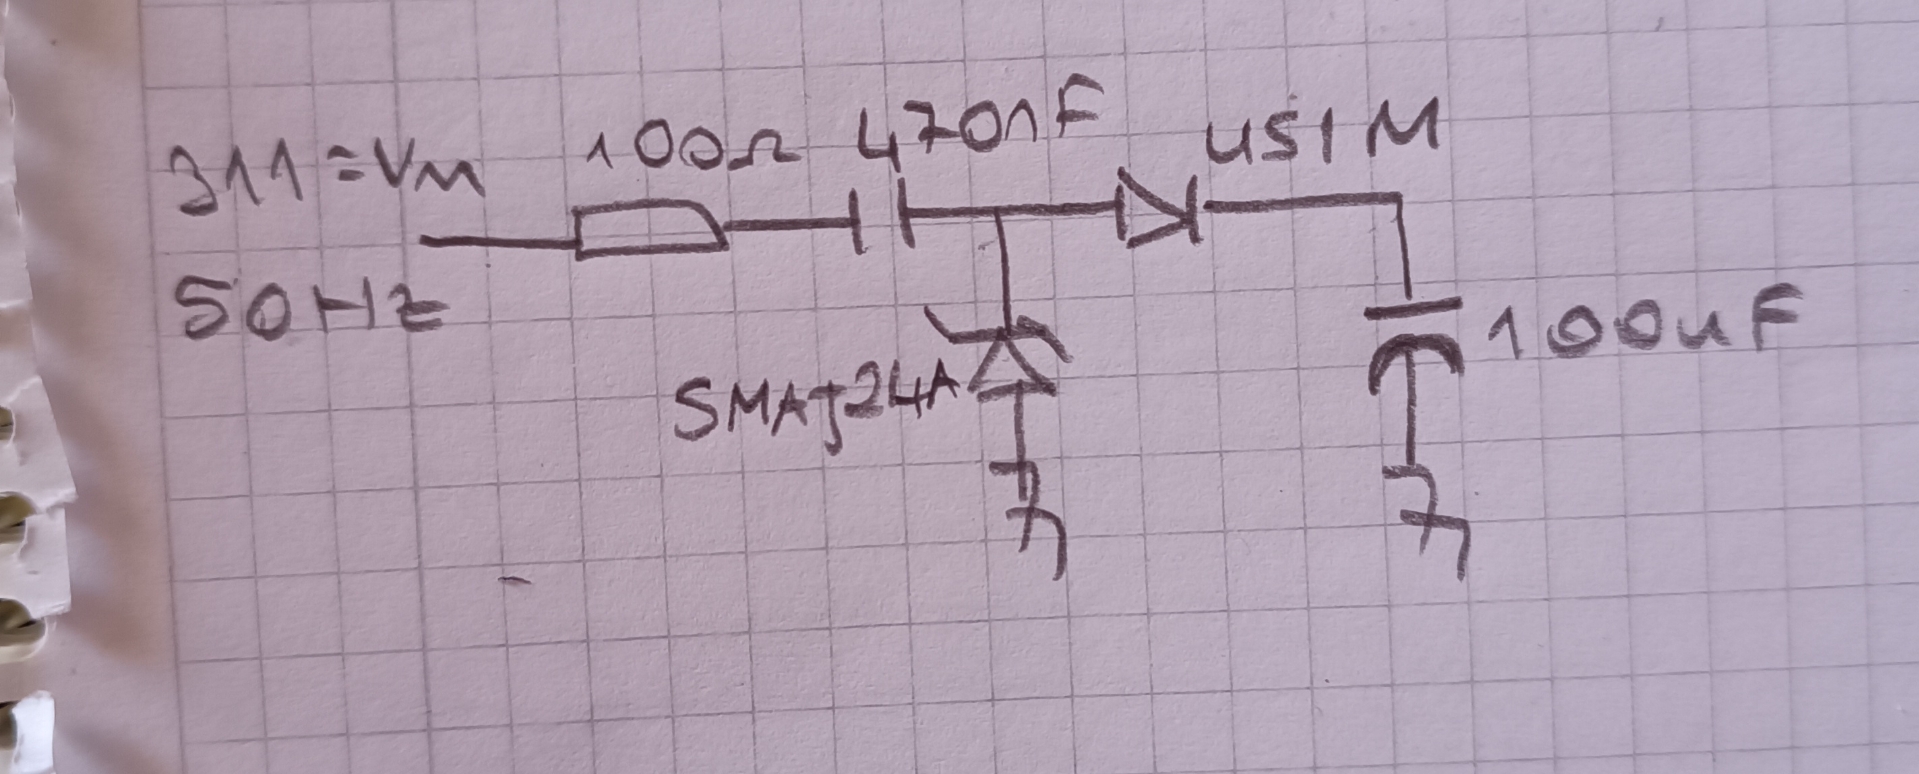 311=Vm
100Ω
470nF
US1M
50Hz
SMAJ24A
100uF